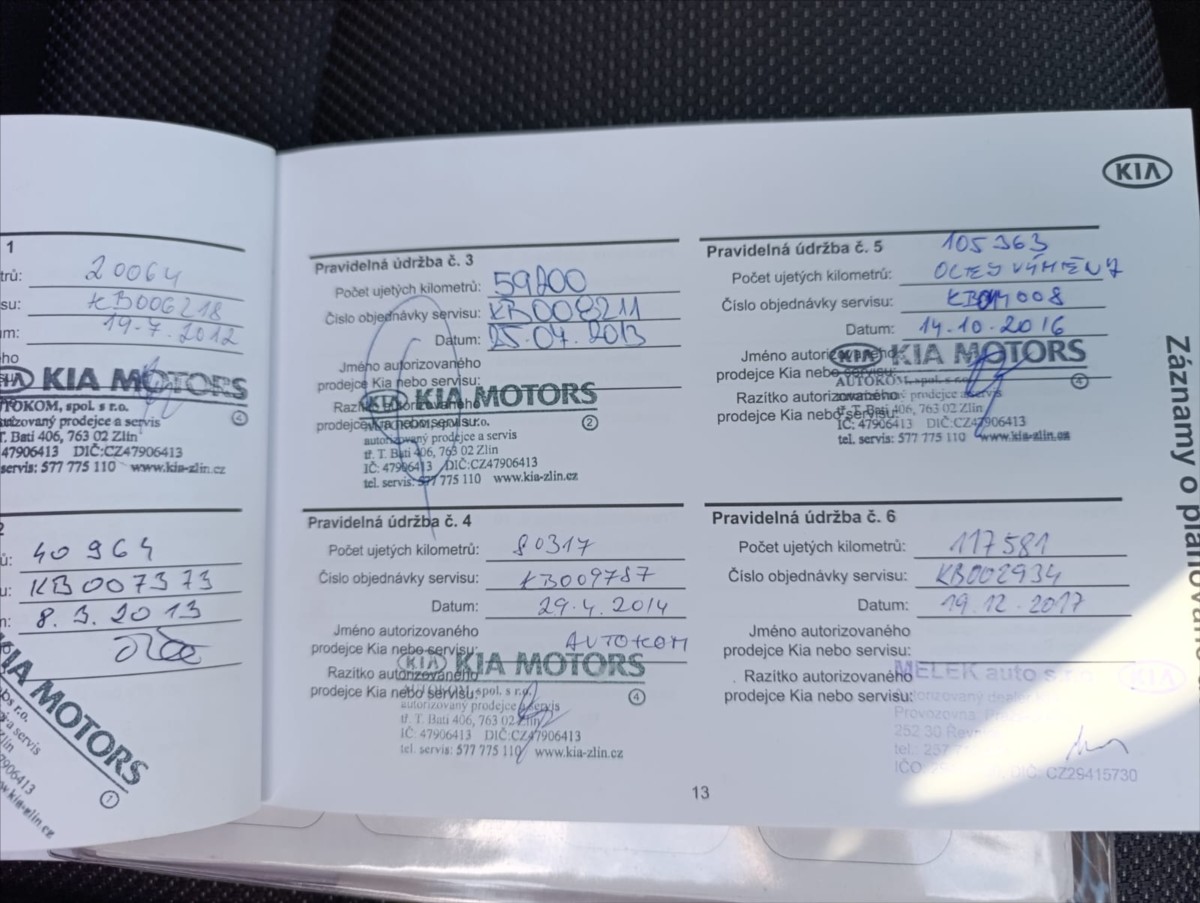 1
trů: 20064
su: KB006218
m: 19-7.2012
ho
KIA KIA MOTORS
TOKOM, spol. s r.o.
autorizovaný prodejce a servis
T. Bati 406, 763 02 Zlín
47906413 DIČ:CZ47906413
servis: 577 775 110 www.kia-zlin.cz
4
2
ů: 40964
u: KB007373
m: 8.3.2013
KIA MOTORS
a servis
7906413
w.kia-zlin.cz
1
KIA
Pravidelná údržba č. 3
Počet ujetých kilometrů: 59200
Číslo objednávky servisu: KB008211
Datum: 25.07.2013
Jméno autorizovaného
prodejce Kia nebo servisu:
Razítko autorizovaného
prodejce Kia nebo servisu:
KIA KIA MOTORS
2
autorizovaný prodejce a servis
tř. T. Bati 406, 763 02 Zlín
IČ: 47906413 DIČ:CZ47906413
tel. servis: 577 775 110 www.kia-zlin.cz
Pravidelná údržba č. 4
Počet ujetých kilometrů: 80317
Číslo objednávky servisu: KB009787
Datum: 29.4.2014
Jméno autorizovaného
prodejce Kia nebo servisu: AUTOKOM
Razítko autorizovaného
prodejce Kia nebo servisu:
KIA KIA MOTORS
spol. s r.o.
4
autorizovaný prodejce a servis
tř. T. Bati 406, 763 02 Zlín
IČ: 47906413 DIČ:CZ47906413
tel. servis: 577 775 110 www.kia-zlin.cz
Pravidelná údržba č. 5
105363
Počet ujetých kilometrů: OLEJ VÝMĚNY
Číslo objednávky servisu:
Datum: 14.10.2016
Jméno autorizovaného
prodejce Kia nebo servisu:
Razítko autorizovaného
prodejce Kia nebo servisu:
KIA KIA MOTORS
AUTOKOM, spol. s r.o.
4
autorizovaný prodejce a servis
tř. T. Bati 406, 763 02 Zlín
IČ: 47906413 DIČ:CZ47906413
tel. servis: 577 775 110 www.kia-zlin.cz
Pravidelná údržba č. 6
Počet ujetých kilometrů: 117581
Číslo objednávky servisu: KB002934
Datum: 19.12.2017
Jméno autorizovaného
prodejce Kia nebo servisu:
Razítko autorizovaného
prodejce Kia nebo servisu:
MELEK auto s.r.o. KIA
Provozovna:
252 30
tel.: 257
IČO: DIČ: CZ29415730
13
Záznamy o plánované